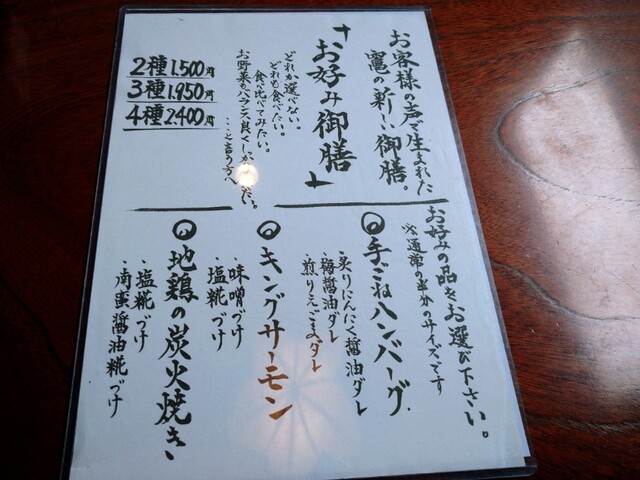 お客様の声で生まれた
竈の新しい御膳。
「お好み御膳」
どれか選べない。
どれも食べたい。
食べ比べてみたい。
お野菜もバランス良くし
と言う方へ
2種1,500円
3種1,950円
4種2,400円
お好みの品をお選び下さい。
※通常の半分のサイズです
手ごねハンバーグ
・炙りにんにく醤油ダレ
・梅醤油ダレ
・煎りえごまダレ
キングサーモン
・味噌づけ
・塩糀づけ
地鶏の炭火焼き
・塩糀づけ
・南蛮醤油糀づけ